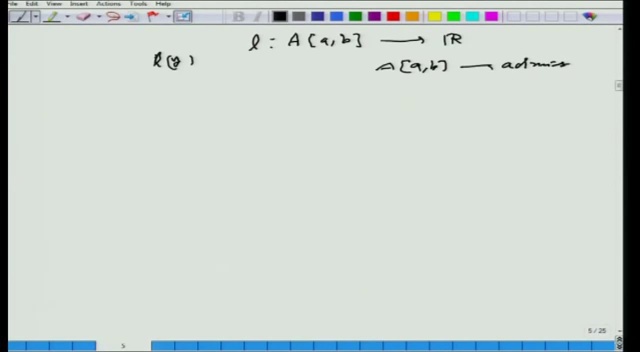 File Edit View Insert Actions Tools Help
B I
l : A [a, b] ⟶ ℝ
l(y)
A [a, b] — admiss
5 / 25
5